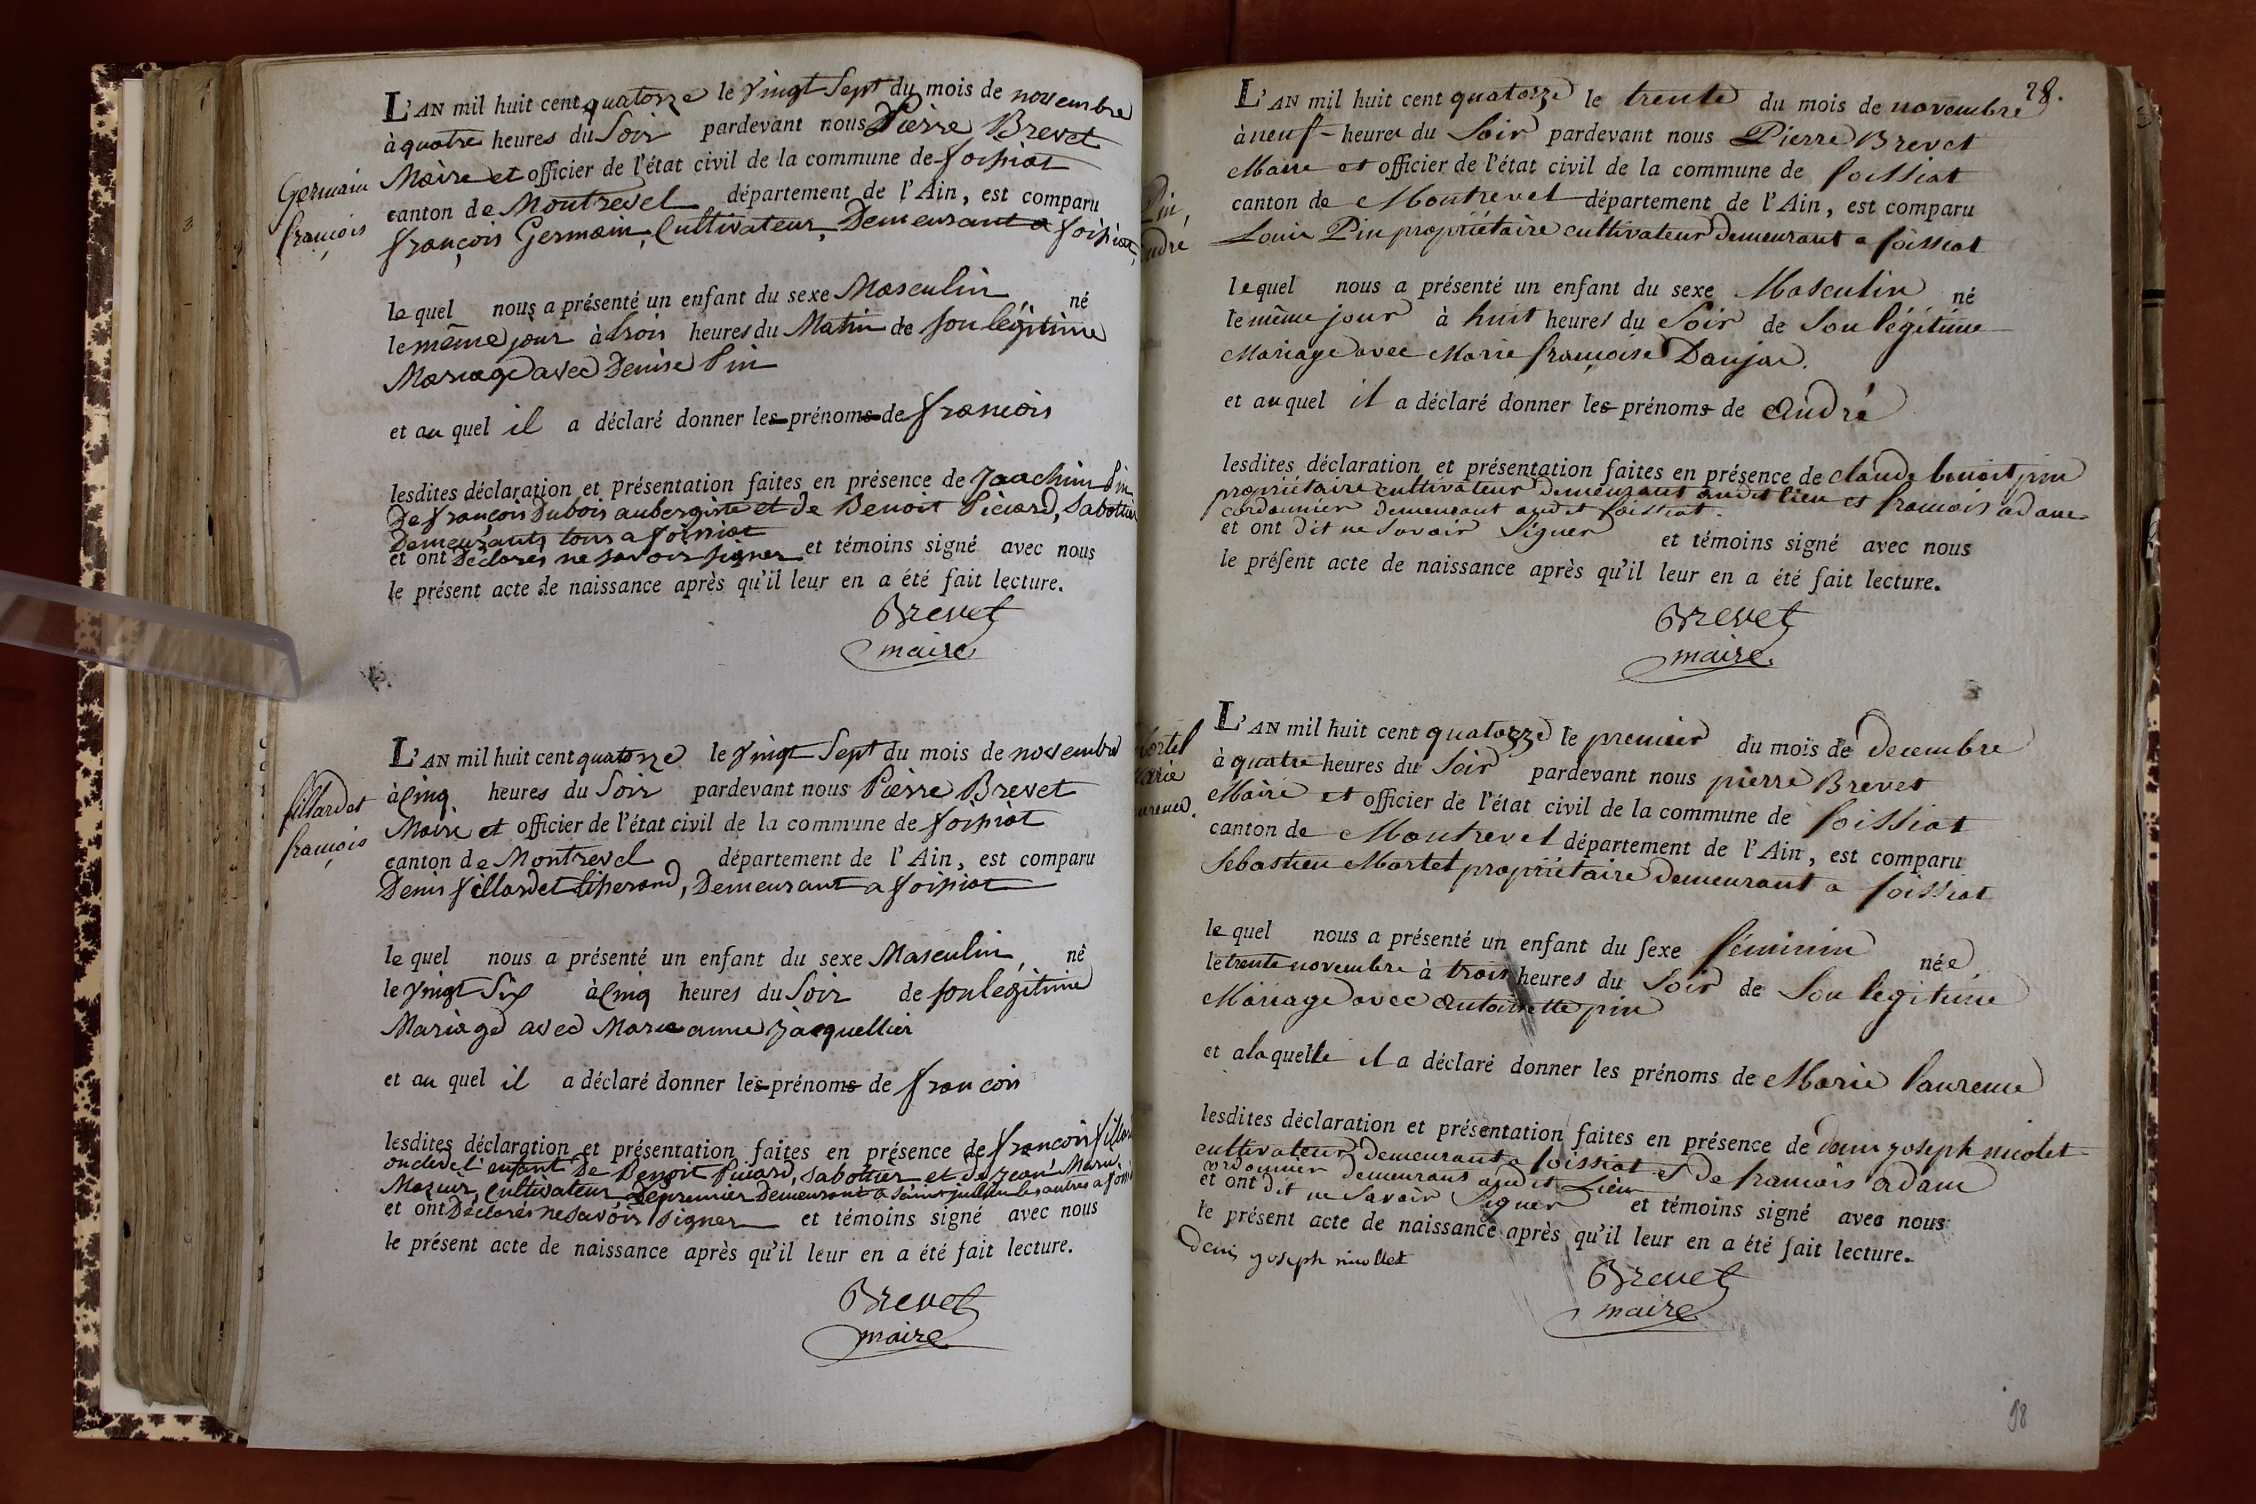 Germain
françois
L'AN mil huit cent quatorze le vingt Sept du mois de novembre
à quatre heures du Soir pardevant nous Pierre Brevet
Maire et officier de l'état civil de la commune de foissiat
canton de Montrevel département de l'Ain, est comparu
françois Germain, Cultivateur, Demeurant a foissiat,
le quel nous a présenté un enfant du sexe Masculin, né
le même jour à trois heures du Matin de son légitime
Mariage avec Denise Pin
et au quel il a déclaré donner les prénoms de françois
lesdites déclaration et présentation faites en présence de Joachim Pin
De françois Dubois aubergiste et de Benoit Picard, Sabotier
Demeurants tous a foissiat
et ont Déclarés ne savoir signer et témoins signé avec nous
le présent acte de naissance après qu'il leur en a été fait lecture.
Brevet
maire
fillardet
françois
L'AN mil huit cent quatorze le vingt Sept du mois de novembre
à Cinq heures du Soir pardevant nous Pierre Brevet
Maire et officier de l'état civil de la commune de foissiat
canton de Montrevel département de l'Ain, est comparu
Denis fillardet tisserand, Demeurant a foissiat
le quel nous a présenté un enfant du sexe Masculin, né
le vingt Six à Cinq heures du Soir de son légitime
Mariage avec Marie anne Jacquellier
et au quel il a déclaré donner les prénoms de françois
lesdites déclaration et présentation faites en présence de françois
oncle de l'enfant De Benoit Picard, sabottier et de jean Marie
Mazuir, Cultivateur, le premier Demeurant a Saint julien les autres a
et ont Déclarés ne savoir signer et témoins signé avec nous
le présent acte de naissance après qu'il leur en a été fait lecture.
Brevet
maire
28.
Pin,
andré
L'AN mil huit cent quatorze le trente du mois de novembre
à neuf heures du Soir pardevant nous Pierre Brevet
Maire et officier de l'état civil de la commune de foissiat
canton de Montrevel département de l'Ain, est comparu
Louis Pin propriétaire cultivateur demeurant a foissiat
le quel nous a présenté un enfant du sexe Masculin né
le même jour à huit heures du Soir de Son légitime
Mariage avec Marie françoise Danjac.
et au quel il a déclaré donner les prénoms de André
lesdites déclaration et présentation faites en présence de claude benoit pin
propriétaire cultivateur demeurant audit lieu et françois adam
cordonnier demeurant audit foissiat.
et ont dit ne Savoir Signer et témoins signé avec nous
le présent acte de naissance après qu'il leur en a été fait lecture.
Brevet
maire
Mortel
Marie
L'AN mil huit cent quatorze le premier du mois de decembre
à quatre heures du Soir pardevant nous pierre Brevet
Maire et officier de l'état civil de la commune de foissiat
canton de Montrevel département de l'Ain, est comparu
Sebastien Mortel propriétaire demeurant a foissiat
le quel nous a présenté un enfant du sexe féminin née
le trente novembre à trois heures du Soir de Son légitime
Mariage avec Antoinette pin
et a laquelle il a déclaré donner les prénoms de Marie laurence
lesdites déclaration et présentation faites en présence de denis joseph nicolet
cultivateur demeurant a foissiat et de françois adam
cordonnier demeurant audit Lieu
et ont dit ne Savoir Signer et témoins signé avec nous
le présent acte de naissance après qu'il leur en a été fait lecture.
denis joseph nicollet
Brevet
maire
98